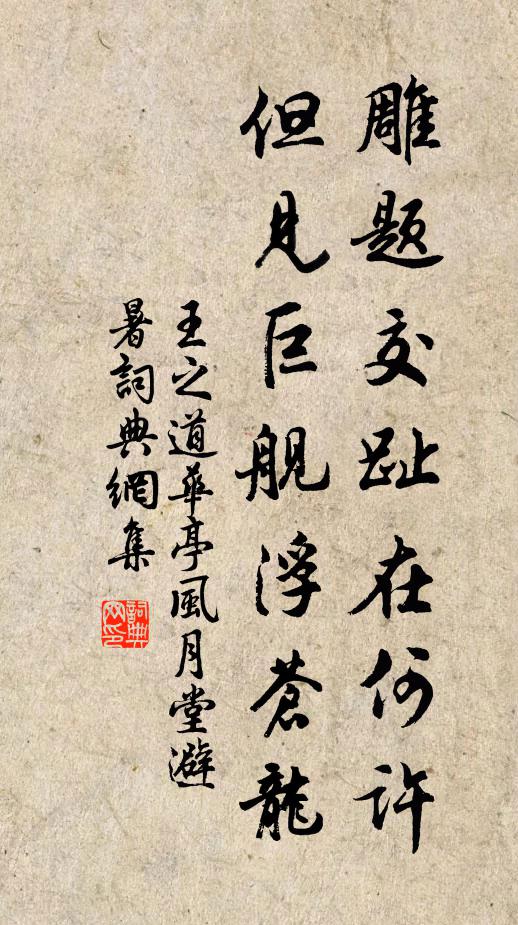 雕题交趾在何许
但见巨舰浮苍龍
王之道華亭風月堂避
暑詞典網集
詞典网印